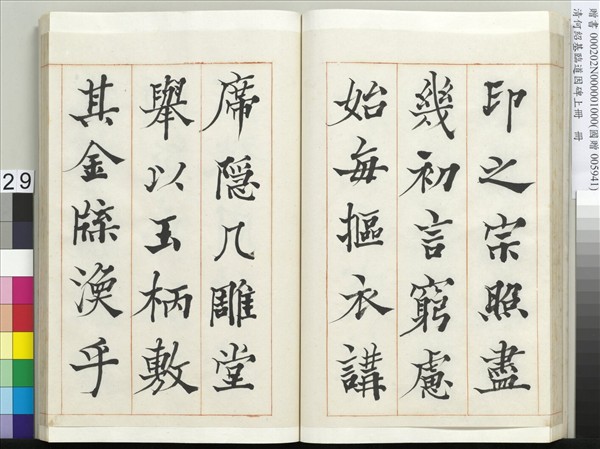 印之宗照盡
幾初言窮慮
始每摳衣講
席隱几雕堂
舉以玉柄敷
其金牒渙乎
贈書 000202N000001000(國贈 005941)
清何紹基臨道因碑上冊 冊
29